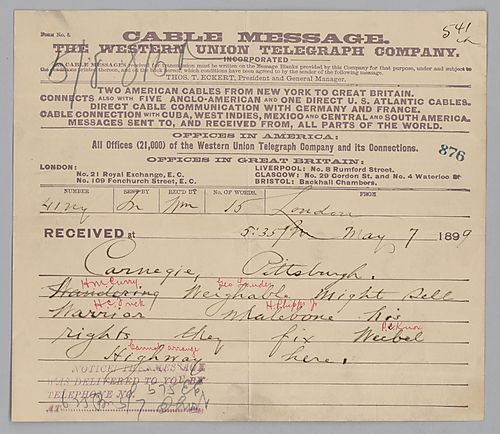 Form No. 8.
CABLE MESSAGE.
THE WESTERN UNION TELEGRAPH COMPANY.
INCORPORATED
All CABLE MESSAGES received for transmission must be written on the Message Blanks provided by this Company for that purpose, under and subject to
the conditions printed thereon, and on the back, which conditions have been agreed to by the sender of the following message.
THOS. T. ECKERT, President and General Manager.
TWO AMERICAN CABLES FROM NEW YORK TO GREAT BRITAIN.
CONNECTS ALSO WITH FIVE ANGLO-AMERICAN AND ONE DIRECT U. S. ATLANTIC CABLES.
DIRECT CABLE COMMUNICATION WITH GERMANY AND FRANCE.
CABLE CONNECTION WITH CUBA, WEST INDIES, MEXICO AND CENTRAL AND SOUTH AMERICA.
MESSAGES SENT TO, AND RECEIVED FROM, ALL PARTS OF THE WORLD.
OFFICES IN AMERICA:
All Offices (21,000) of the Western Union Telegraph Company and its Connections.
876
OFFICES IN GREAT BRITAIN:
LONDON:
No. 21 Royal Exchange, E. C.
No. 109 Fenchurch Street, E. C.
LIVERPOOL: No. 8 Rumford Street.
GLASGOW: No. 29 Gordon St. and No. 4 Waterloo
BRISTOL: Backhall Chambers.
NUMBER SENT BY REC'D BY NO. OF WORDS. FROM
41 Ny 15 London
RECEIVED at 5:35 PM May 7 1899
Carnegie, Pittsburgh.
H M Curry Geo Lauder
Weighable Might Sell
H C Frick H Phipps Jr
Warrior Whalebone his
P C Knox
rights they fix Weibel
Cannot arrange
Highway here.
NOTICE! THE MESSAGE
WAS DELIVERED TO YOU BY
TELEPHONE NO.
AT